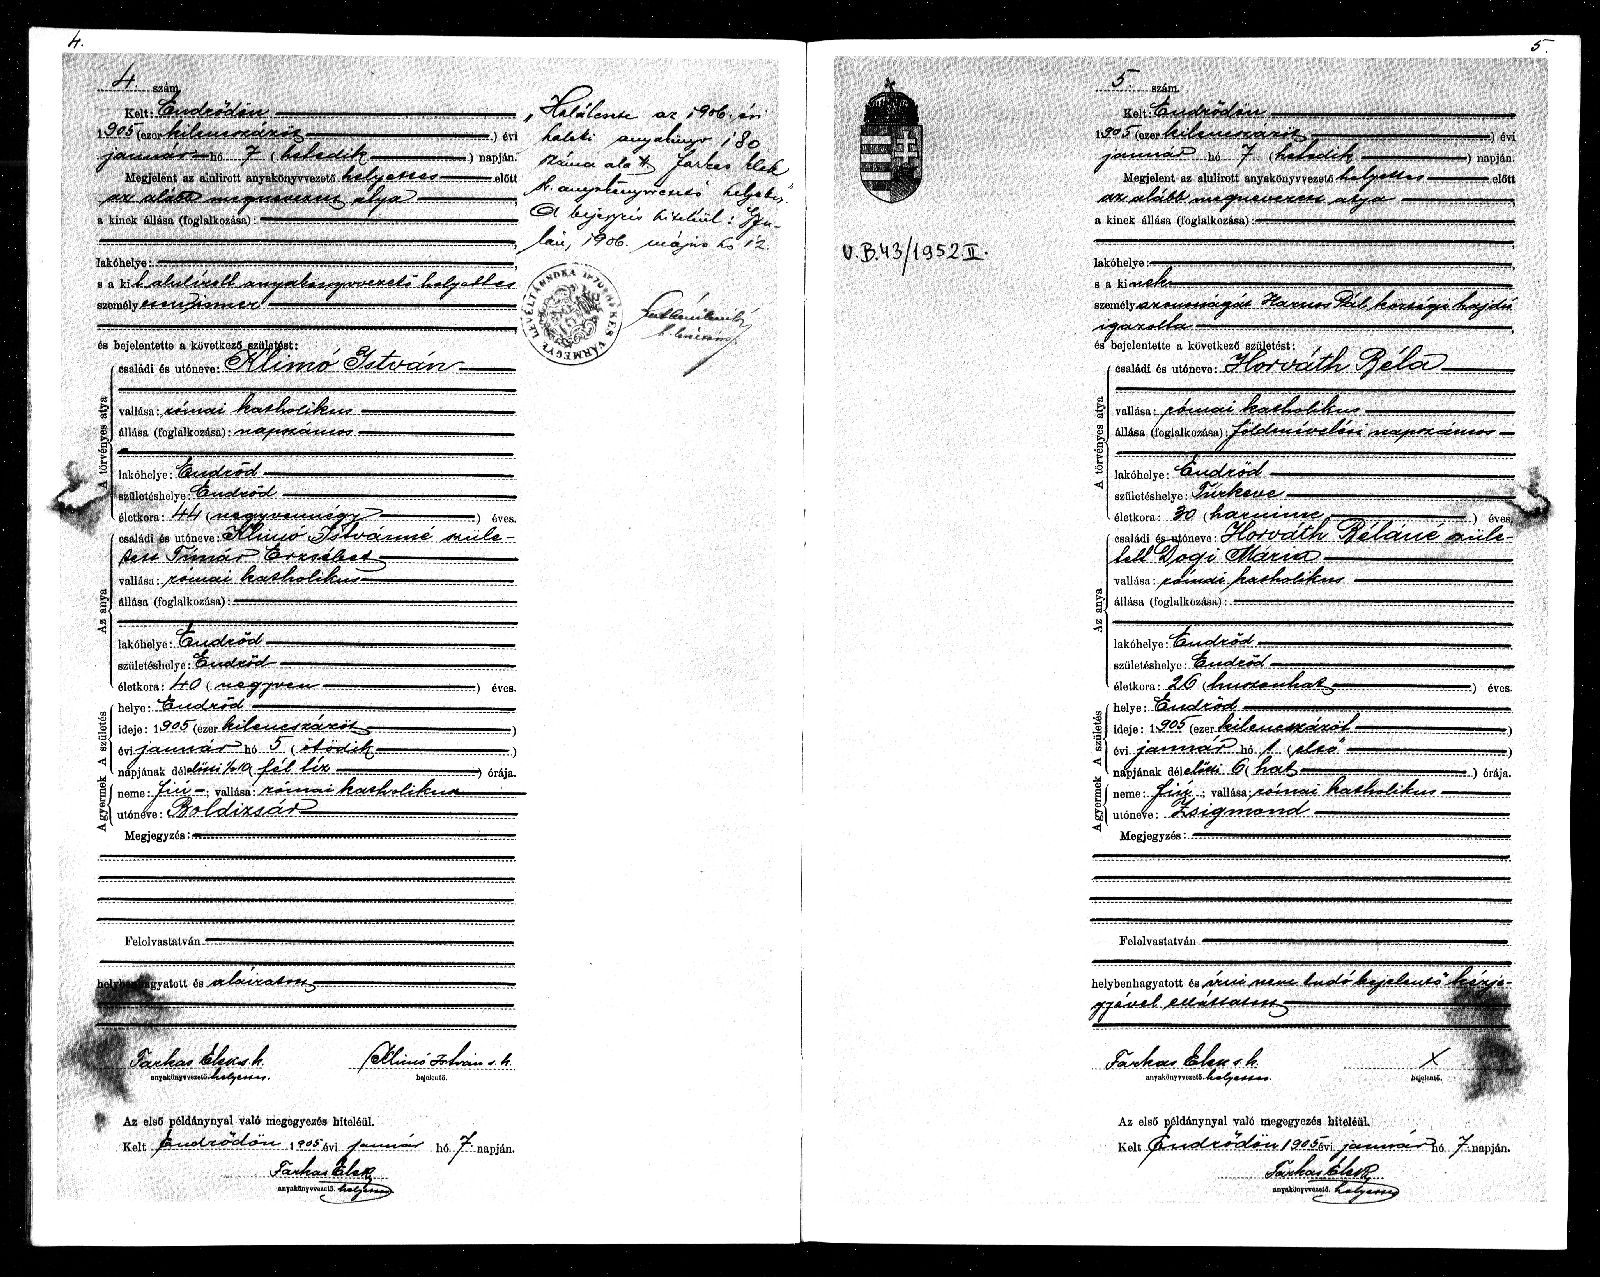 4.
4. szám.
Kelt: Endrődön
1905 (ezer kilenczszázöt ) évi
január hó 7 ( hetedik ) napján.
Megjelent az alulirott anyakönyvvezető helyettes előtt
az alább megnevezett atya
a kinek állása (foglalkozása):
lakóhelye:
s a kit alulírott anyakönyvvezető helyettes
személyesen ismer
és bejelentette a következő születést:
A törvényes atya
családi és utóneve: Klimó István
vallása: római katholikus
állása (foglalkozása): napszámos
lakóhelye: Endrőd
születéshelye: Endrőd
életkora: 44 ( negyvennégy ) éves.
Az anya
családi és utóneve: Klimó Istvánné szüle-
tett Tímár Erzsébet
vallása: római katholikus
állása (foglalkozása):
lakóhelye: Endrőd
születéshelye: Endrőd
életkora: 40 ( negyven ) éves.
A születés
helye: Endrőd
ideje: 1905 (ezer kilenczszázöt )
évi január hó 5 ( ötödik )
napjának délelőtti ½10 ( fél tíz ) órája.
A gyermek
neme: fiú ; vallása: római katholikus
utóneve: Boldizsár
Megjegyzés:
Felolvastatván
helybenhagyatott és aláíratott
Farkas Elek s.k. Klimó István s.k.
anyakönyvvezető helyettes. bejelentő.
Az első példánynyal való megegyezés hiteléül.
Kelt Endrődön 1905 évi január hó 7 napján.
Farkas Elek
anyakönyvvezető helyettes
„Halálesete az 1906. évi
haláli anyakönyv 180
száma alatt. Farkas Elek
h. anyakönyvvezető helyettes"
A bejegyzés hiteléül: Gyu-
lán, 1906. május hó 12.
BÉKÉS VÁRMEGYE LEVÉLTÁRNOKA
5.
5. szám.
V.B.43/1952 II.
Kelt: Endrődön
1905 (ezer kilenczszázöt ) évi
január hó 7 ( hetedik ) napján.
Megjelent az alulirott anyakönyvvezető helyettes előtt
az alább megnevezett atya
a kinek állása (foglalkozása):
lakóhelye:
s a kinek
személyazonosságát Harnos Pál községi hajdú
igazolta
és bejelentette a következő születést:
A törvényes atya
családi és utóneve: Horváth Béla
vallása: római katholikus
állása (foglalkozása): földmívelési napszámos
lakóhelye: Endrőd
születéshelye: Túrkeve
életkora: 30 ( harmincz ) éves.
Az anya
családi és utóneve: Horváth Béláné szüle-
tett Dogi Mária
vallása: római katholikus
állása (foglalkozása):
lakóhelye: Endrőd
születéshelye: Endrőd
életkora: 26 ( huszonhat ) éves.
A születés
helye: Endrőd
ideje: 1905 (ezer kilenczszázöt )
évi január hó 1 ( első )
napjának délelőtti 6 ( hat ) órája.
A gyermek
neme: fiú ; vallása: római katholikus
utóneve: Zsigmond
Megjegyzés:
Felolvastatván
helybenhagyatott és írni nem tudó bejelentő kézje-
gyével elláttatott
Farkas Elek s.k. X
anyakönyvvezető helyettes bejelentő.
Az első példánynyal való megegyezés hiteléül.
Kelt Endrődön 1905 évi január hó 7 napján.
Farkas Elek
anyakönyvvezető helyettes